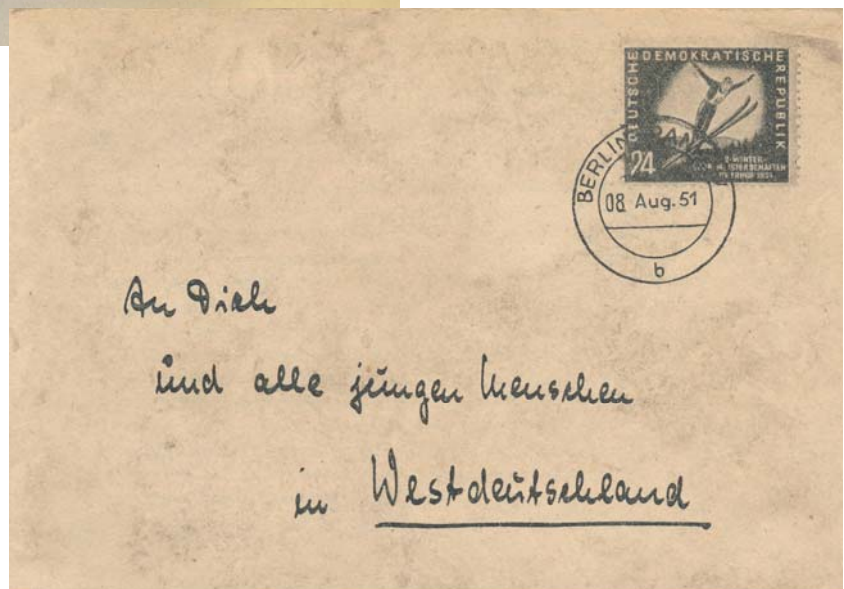 DEUTSCHE DEMOKRATISCHE REPUBLIK
24
BERLIN
08 Aug. 51
b
An Dich
und alle jungen Menschen
in Westdeutschland